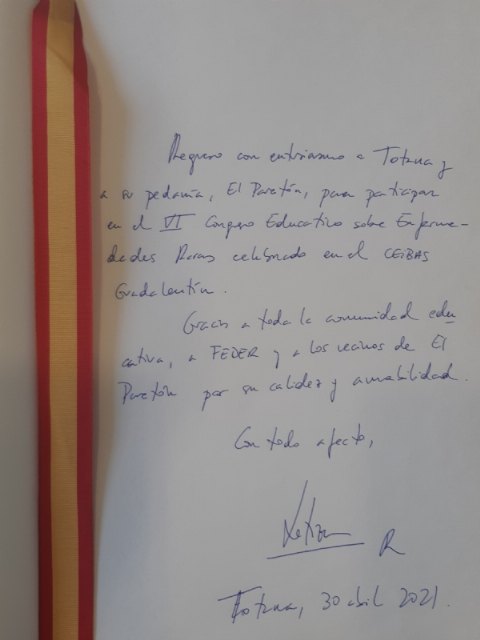 Regreso con entusiasmo a Totana y
a su pedanía, El Paretón, para participar
en el VI Congreso Educativo sobre Enferme-
dades Raras celebrado en el CEIBAS
Guadalentín.
Gracias a toda la comunidad edu
cativa, a FEDER y a los vecinos de El
Paretón por su calidez y amabilidad.
Con todo afecto,
Letizia R
Totana, 30 abril 2021.